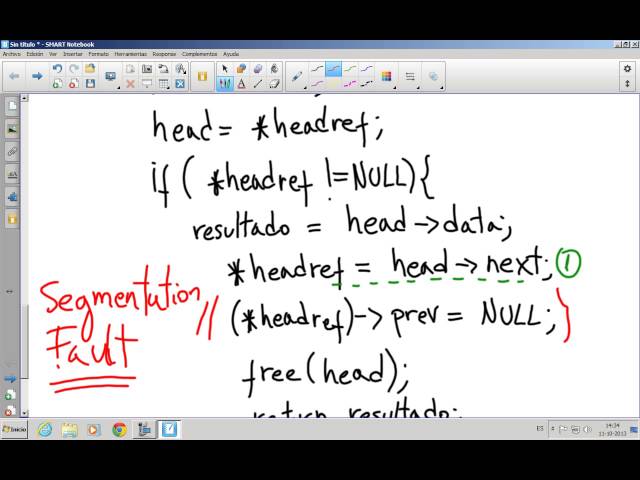 Sin título * - SMART Notebook
Archivo Edición Ver Insertar Formato Herramientas Responder Complementos Ayuda
head = *headref;
if ( *headref != NULL) {
resultado = head -> data;
*headref = head -> next; 1
Segmentation Fault
// (*headref) -> prev = NULL; }
free(head);
return resultado;
Inicio
ES
14:34
11-10-2013